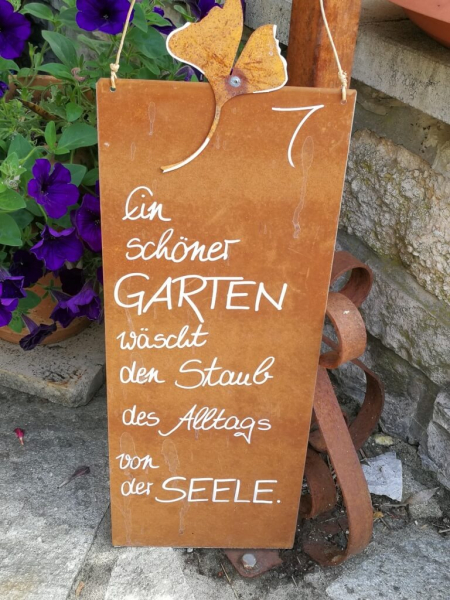 Ein
schöner
GARTEN
wäscht
den Staub
des Alltags
von
der SEELE.